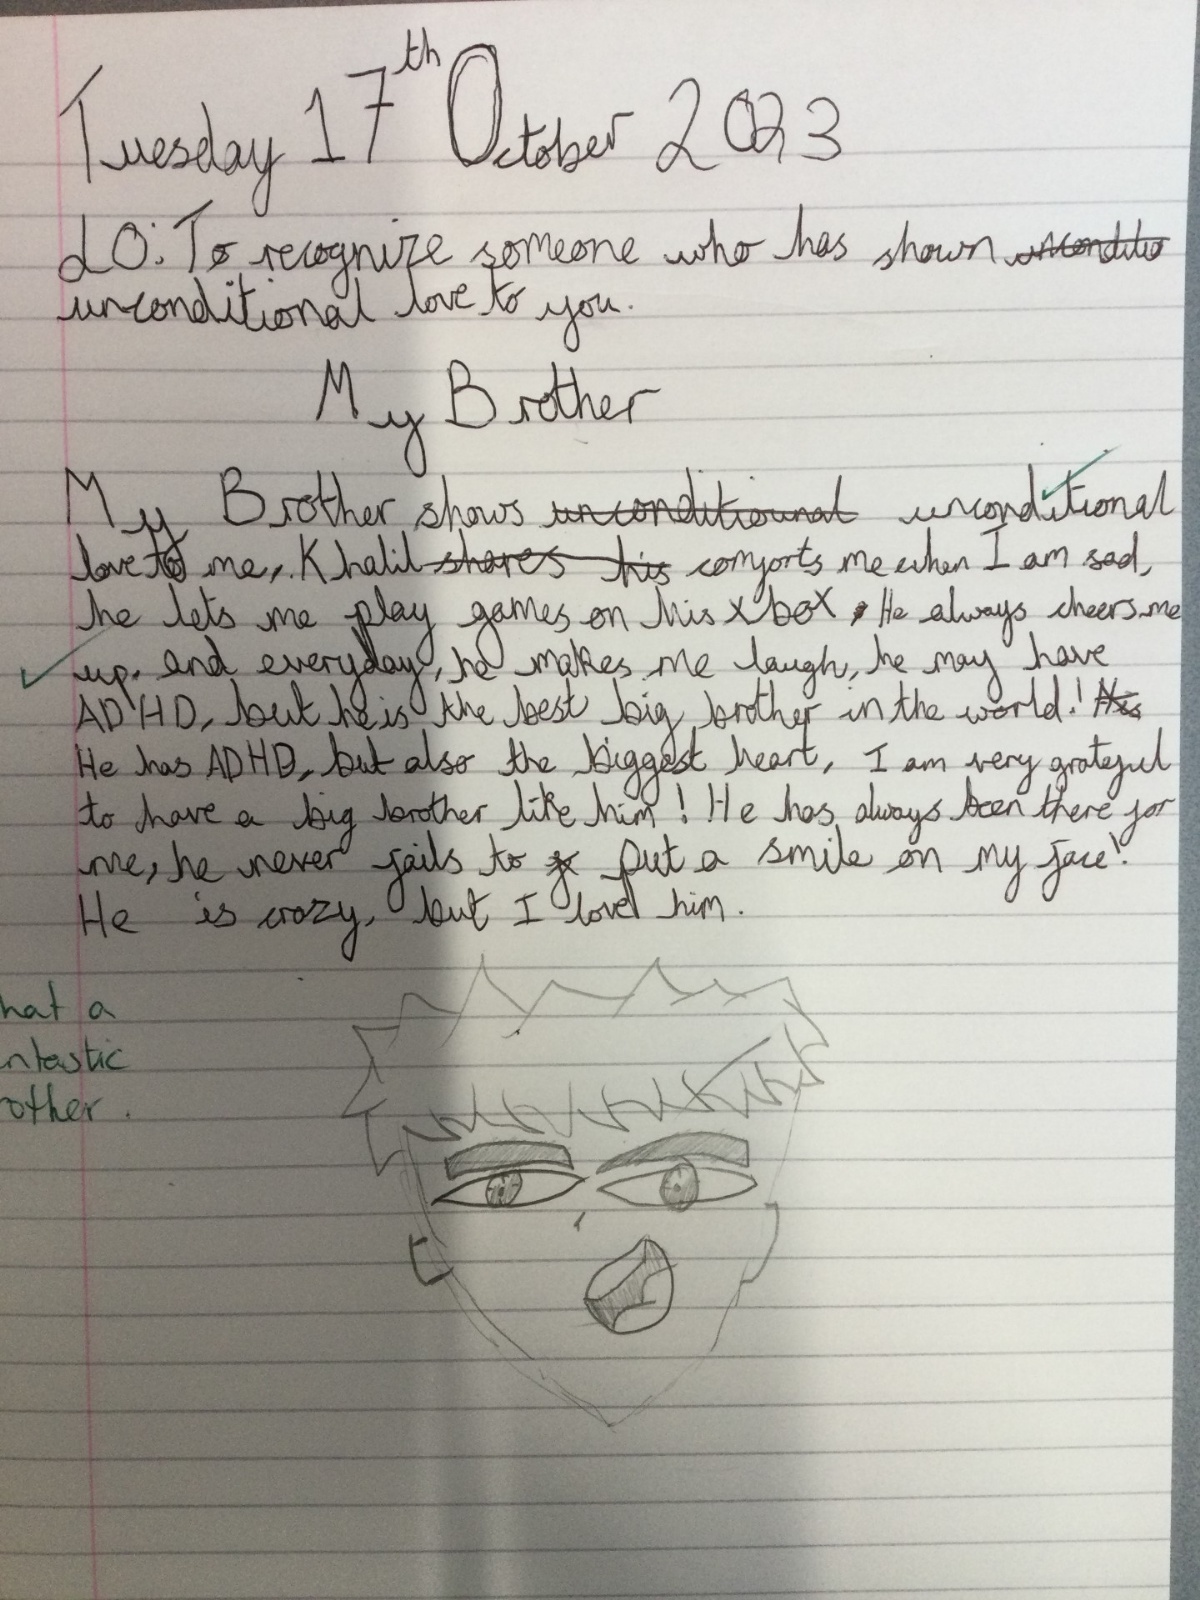 Tuesday 17th October 2023
LO: To recognize someone who has shown unconditio
unconditional love to you.
My Brother
My Brother shows unconditiounal unconditional
love to me, Khalil shares his comforts me when I am sad,
he lets me play games on his xbox, He always cheers me
up. and everyday, he makes me laugh, he may have
ADHD, but he is the best big brother in the world! His
He has ADHD, but also the biggest heart, I am very grateful
to have a big brother like him! He has always been there for
me, he never fails to put a smile on my face!
He is crazy, but I love him.
hat a
ntastic
rother.